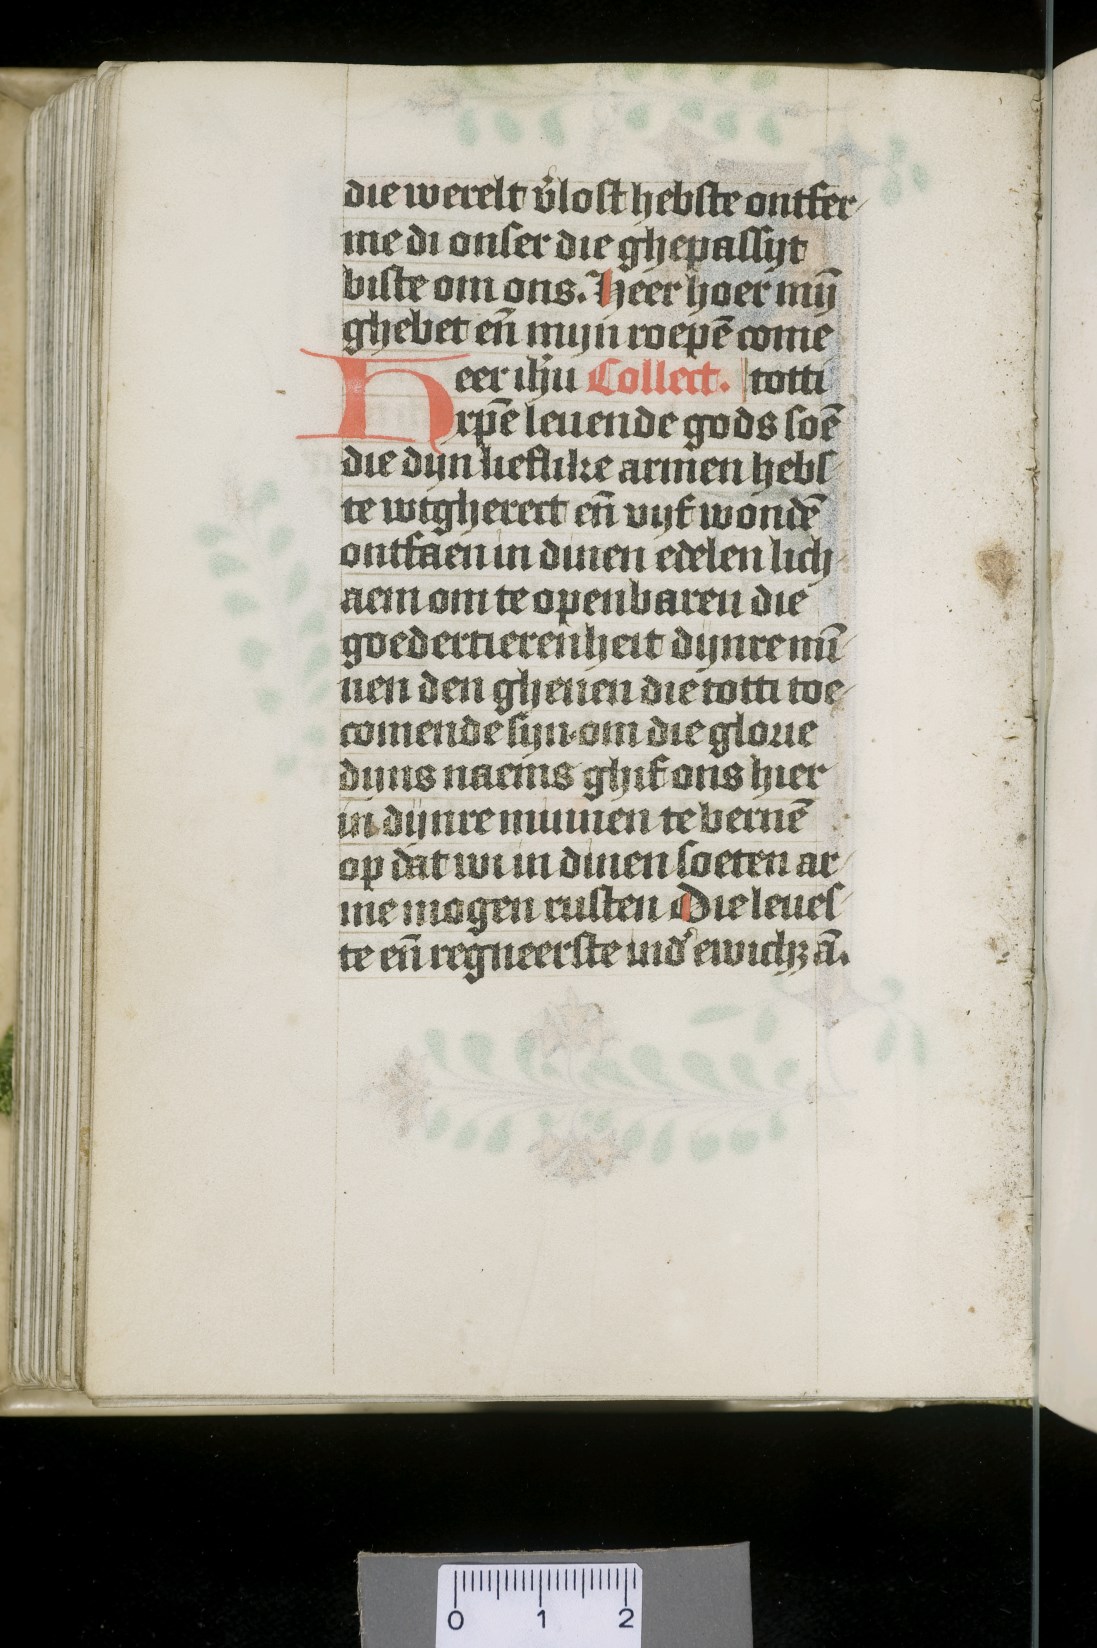 die werelt v̉lost hebste ontfer-
me di onser die ghepassijt
biste om ons. Heer hoer mij̄
ghebet en̄ mijn roepē come
Heer ih̄u Collect. totti
xpē leuende gods soē
die dijn lieflike armen hebs-
te wtgherect en̄ vijf wondē
ontfaen in dinen edelen lich-
aem om te openbaren die
goedertierenheit dijnre mī-
nen den ghenen die totti toe-
comende sijn om die glorie
dijns naems ghif ons hier
in dijnre minnen te bernē
op dat wi in dinen soeten ar-
me mogen rusten Die leues-
te en̄ regneerste ind̉ ewichꝫ ā.
0 1 2